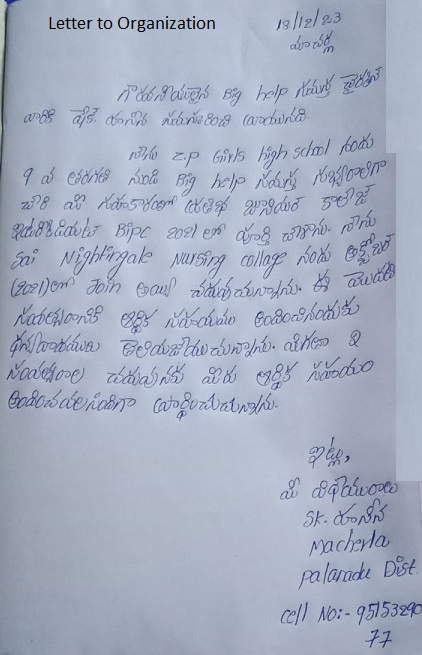 Letter to Organization
13/12/23
మాచర్ల
గౌరవనీయులైన Big help సంస్థ డైరెక్టర్
వారికి షేక్ యాసిన నమస్కరించి వ్రాయునది
నేను Z.p Girls high school నందు
9 వ తరగతి నుండి Big help సంస్థ
చేరి మీ సహకారంతో జూనియర్ కాలేజ్
BiPC 2021 లో పూర్తి చేశాను. నేను
Sai Nightingale Nursing collage నందు అక్టోబర్
(2021)లో Join అయ్యి చదువుచున్నాను. ఈ మొదటి
సంవత్సరానికి ఆర్థిక సహాయము అందించినందుకు
ధన్యవాదములు తెలియజేయుచున్నాను. మిగతా
సంవత్సరాల చదువునకు మీరు ఆర్థిక సహాయం
అందించవలసిందిగా ప్రార్థించుచున్నాను.
ఇట్లు,
మీ విధేయురాలు
SK. యాసిన
Macherla
palanadu Dist.
Cell No:- 95153290
77